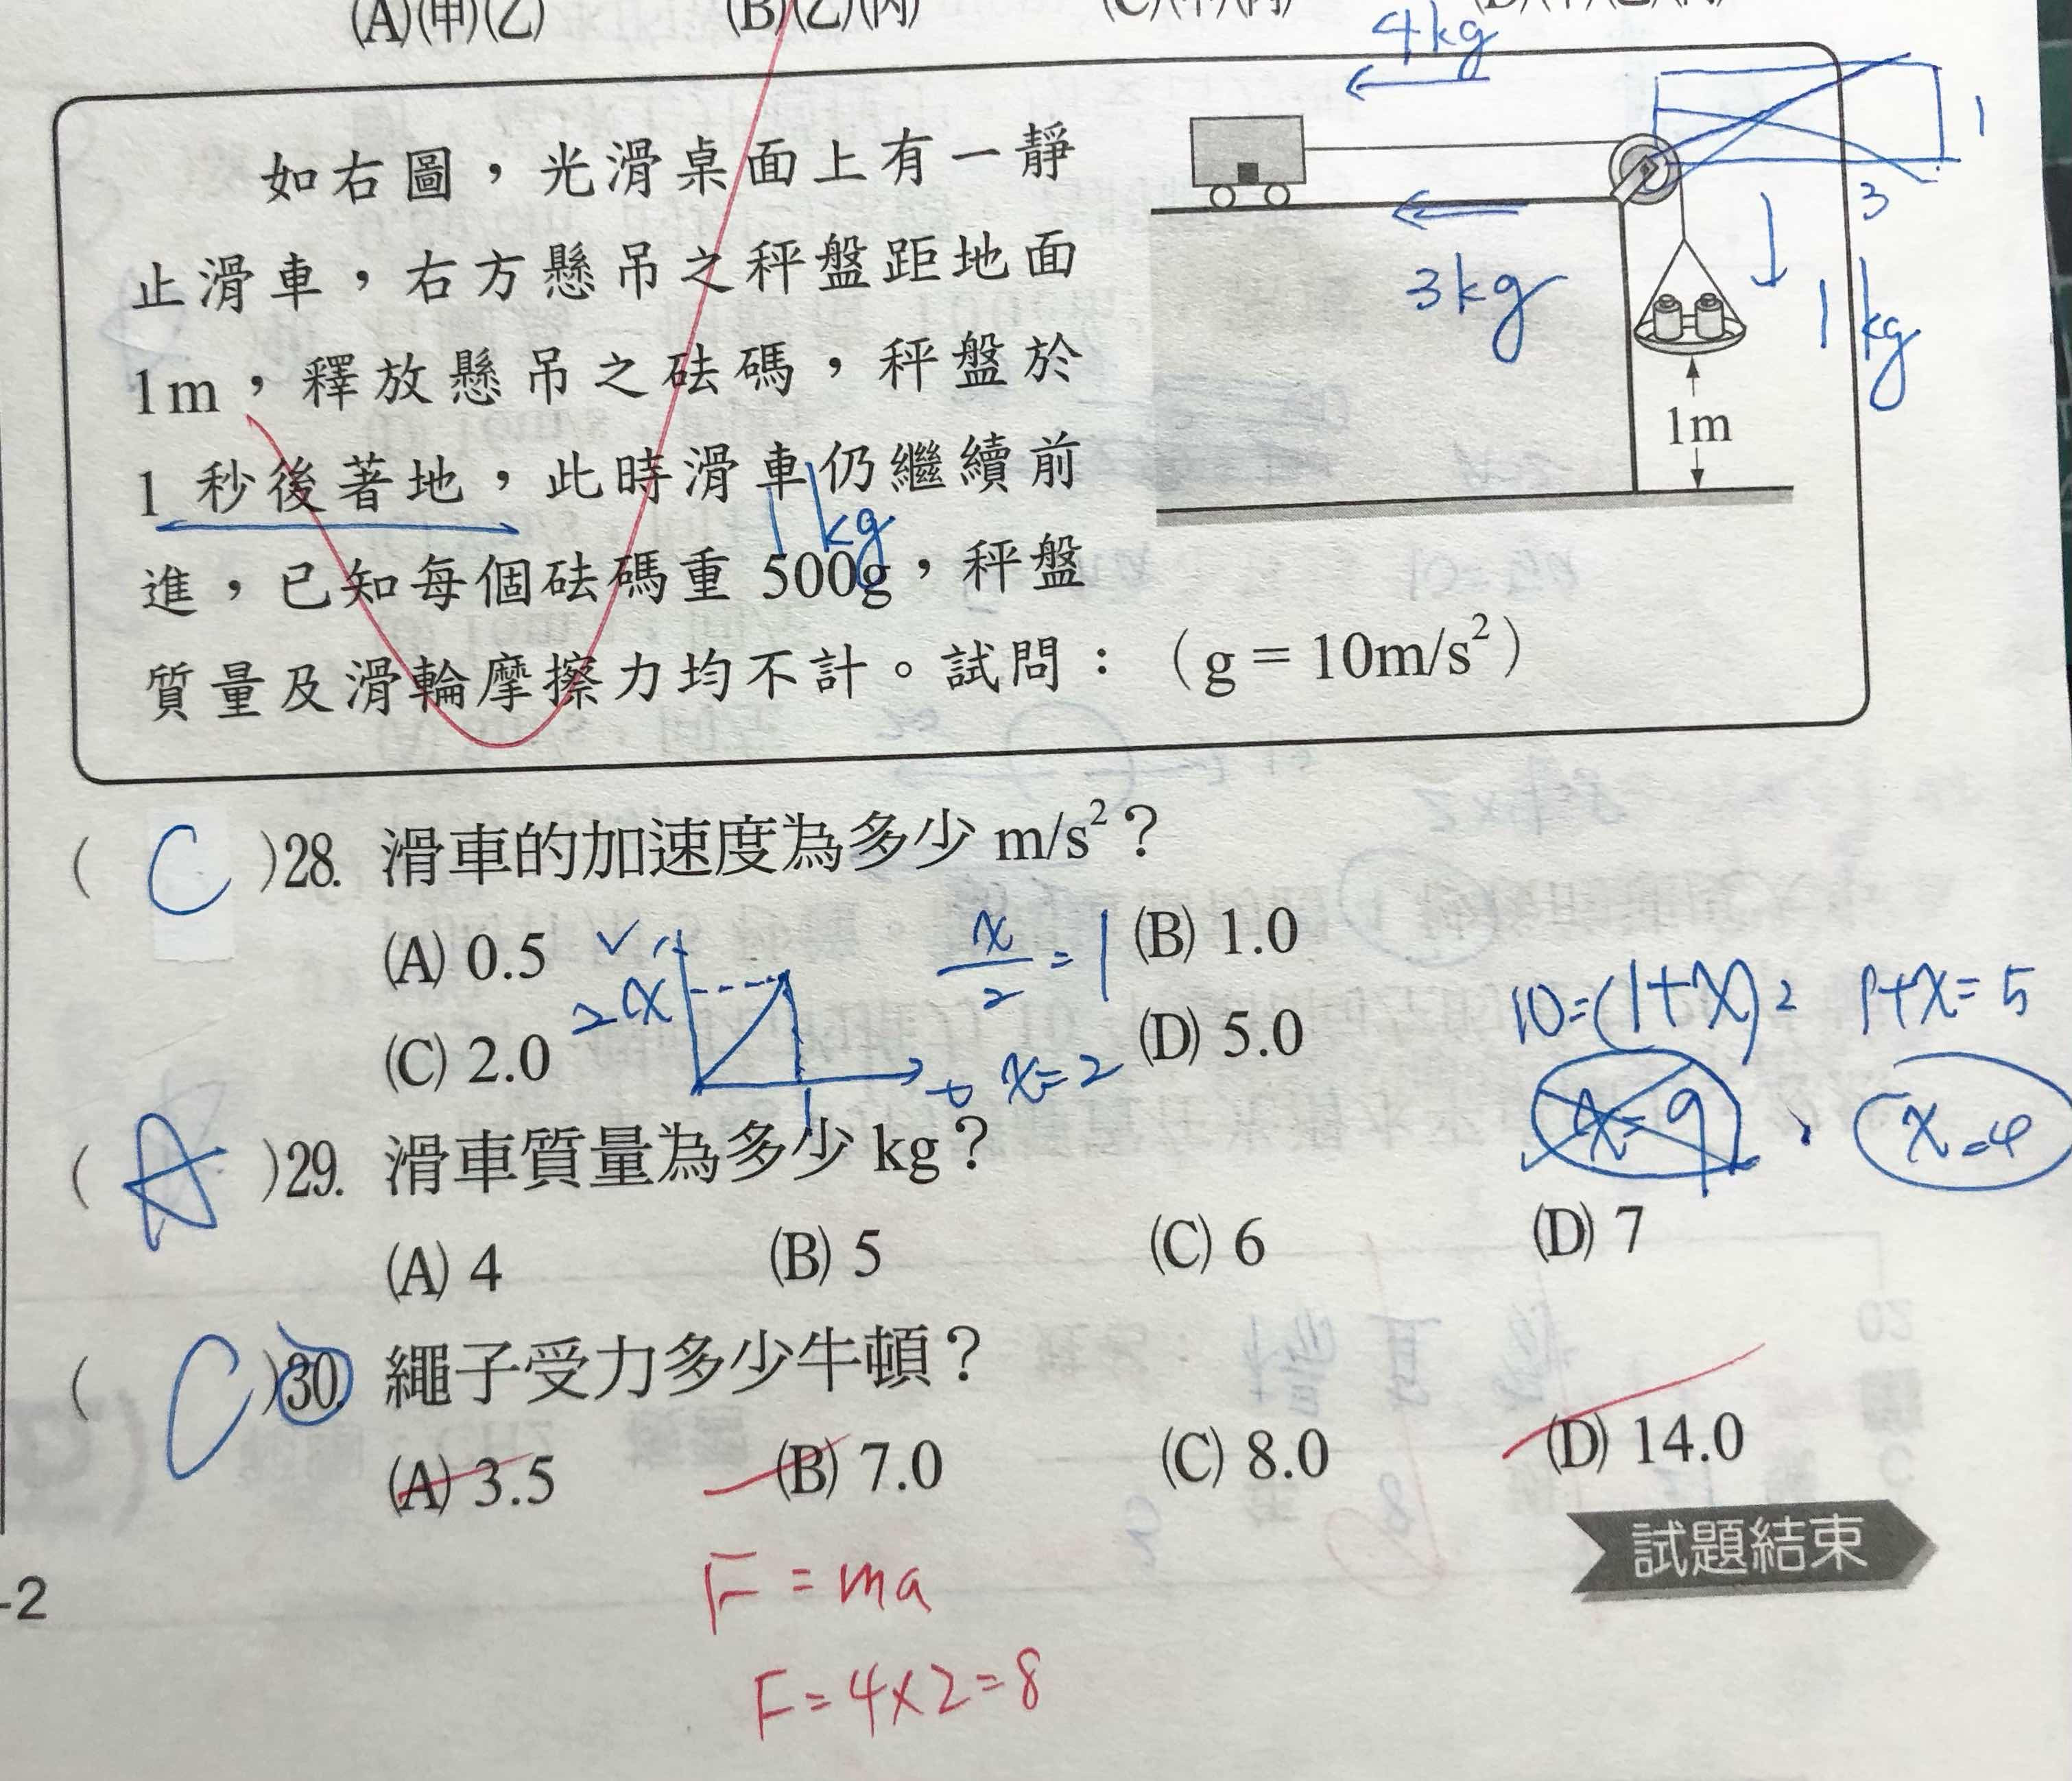 (A)(甲)(乙) (B)(乙)(丙)
4kg
如右圖，光滑桌面上有一靜
止滑車，右方懸吊之秤盤距地面
1m，釋放懸吊之砝碼，秤盤於
1秒後著地，此時滑車仍繼續前
進，已知每個砝碼重 500g，秤盤
質量及滑輪摩擦力均不計。試問：（g = 10m/s²）
1kg
1
3
3kg
1kg
1m
( C )28. 滑車的加速度為多少 m/s²？
(A) 0.5 (B) 1.0
(C) 2.0 (D) 5.0
V
2 x
t
1
x/2 = 1
x=2
10=(1+x)2 1+x=5
x=9 x=4
( A )29. 滑車質量為多少 kg？
(A) 4 (B) 5 (C) 6 (D) 7
( C )30. 繩子受力多少牛頓？
(A) 3.5 (B) 7.0 (C) 8.0 (D) 14.0
試題結束
-2
F=ma
F=4×2=8